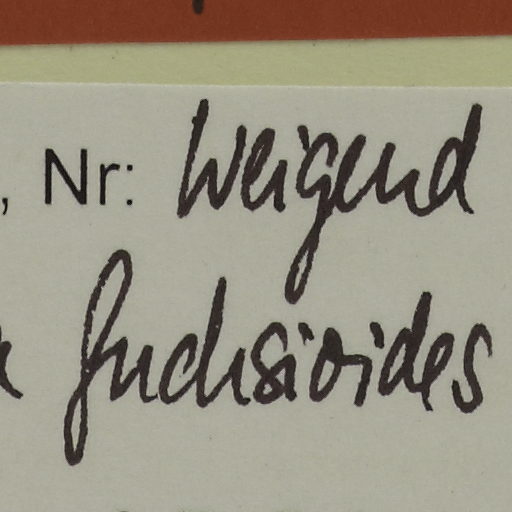 , Nr: Weigend
fuchsioides